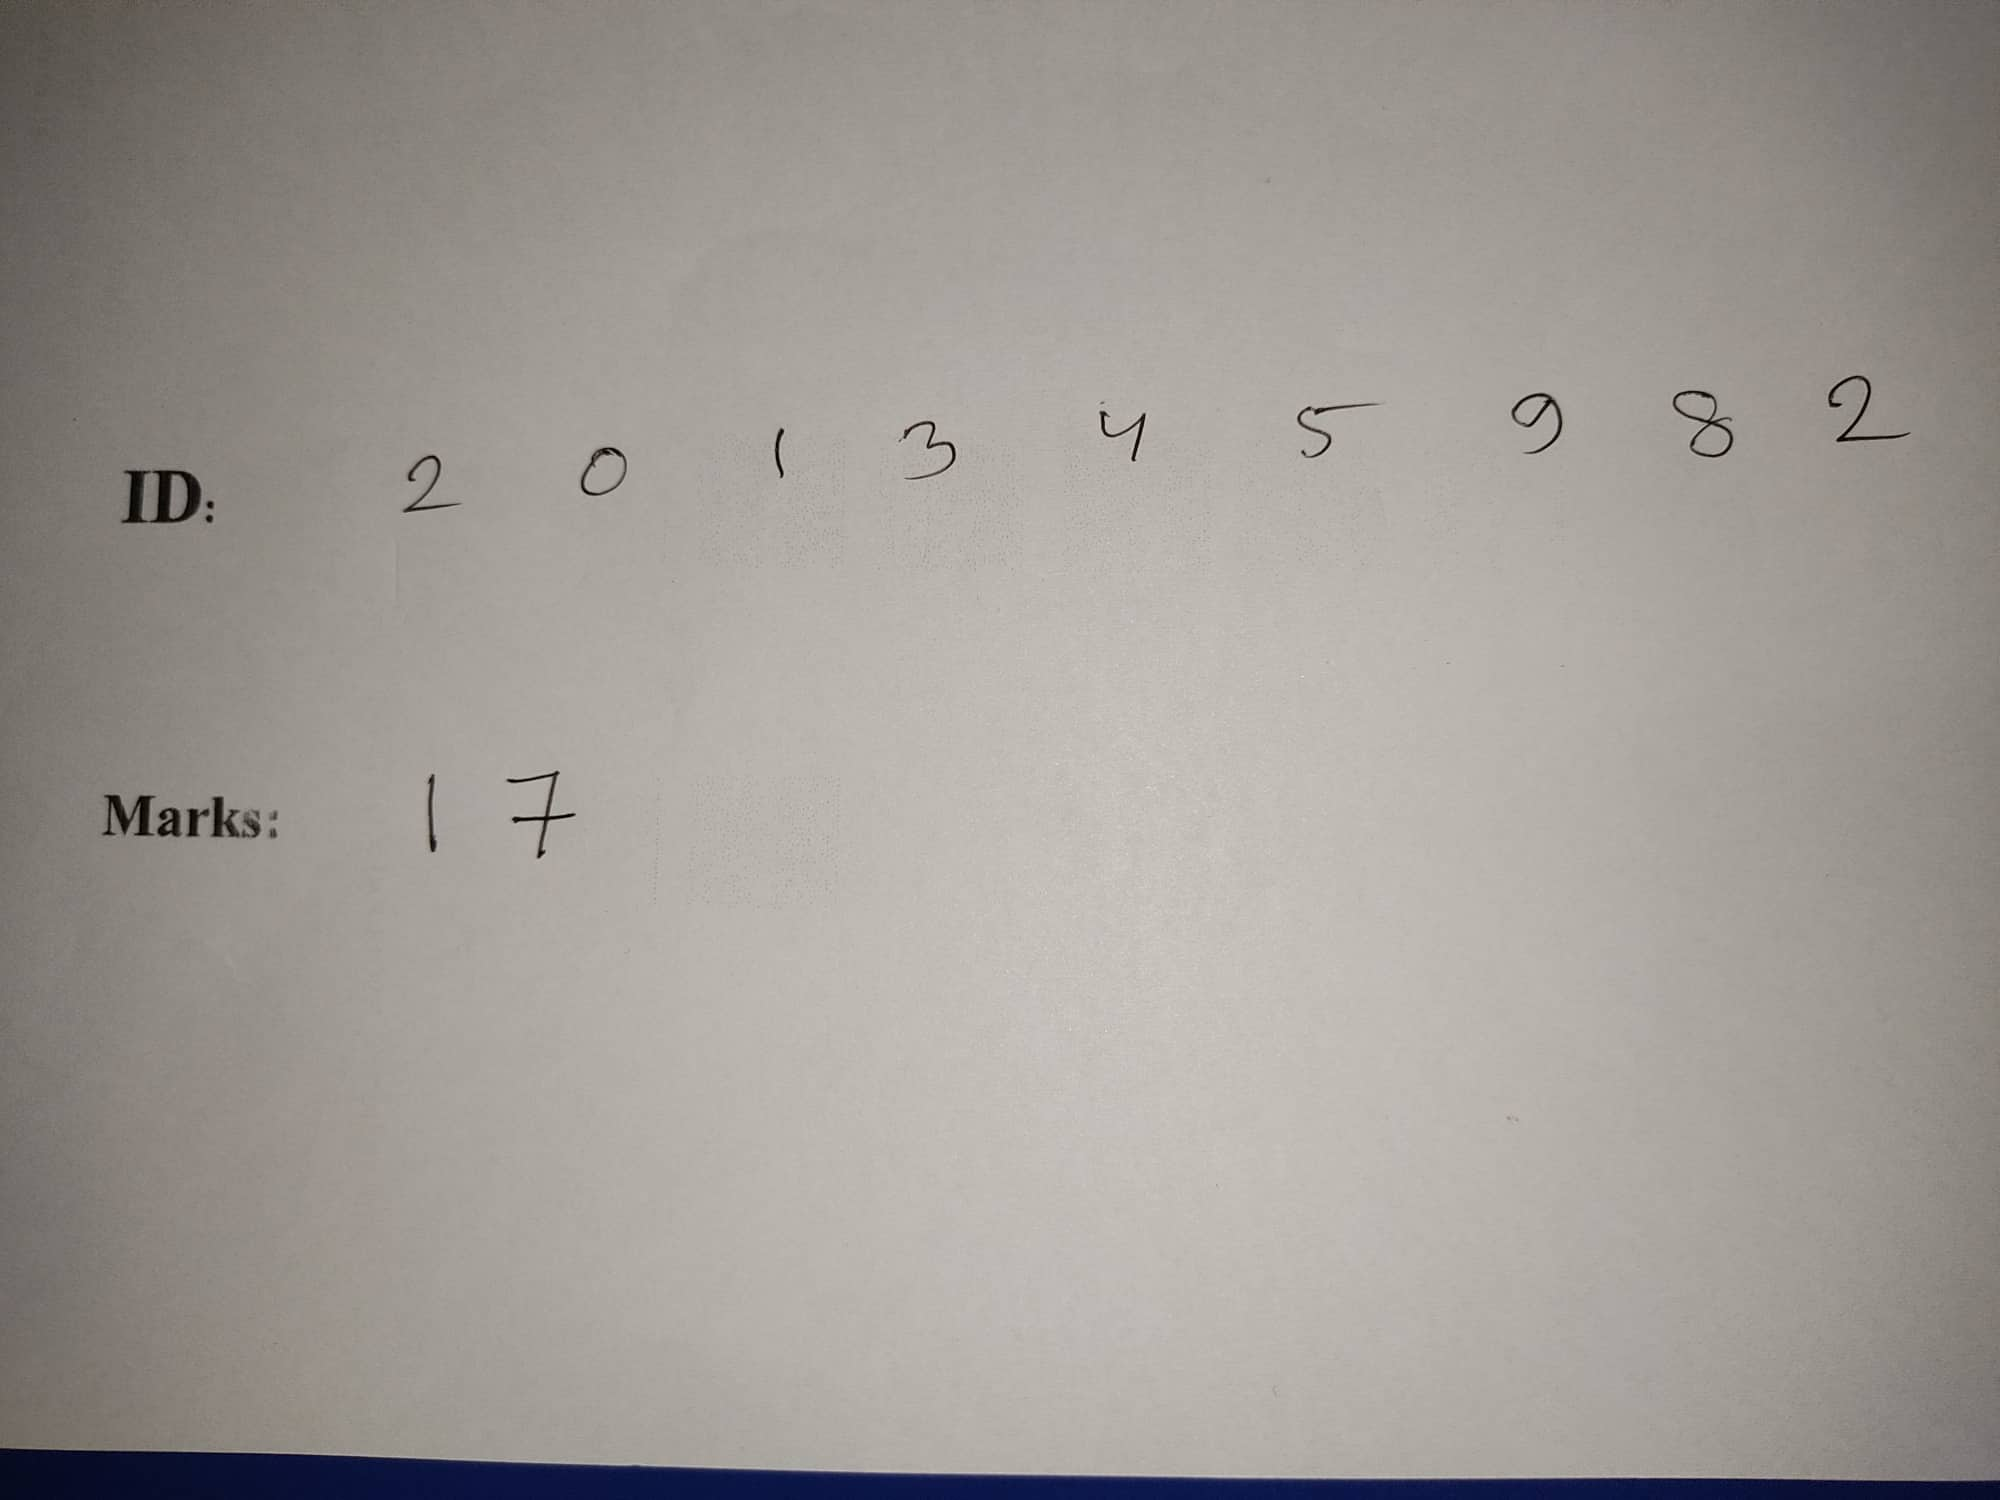 ID: 2 0 1 3 4 5 9 8 2
Marks: 1 7